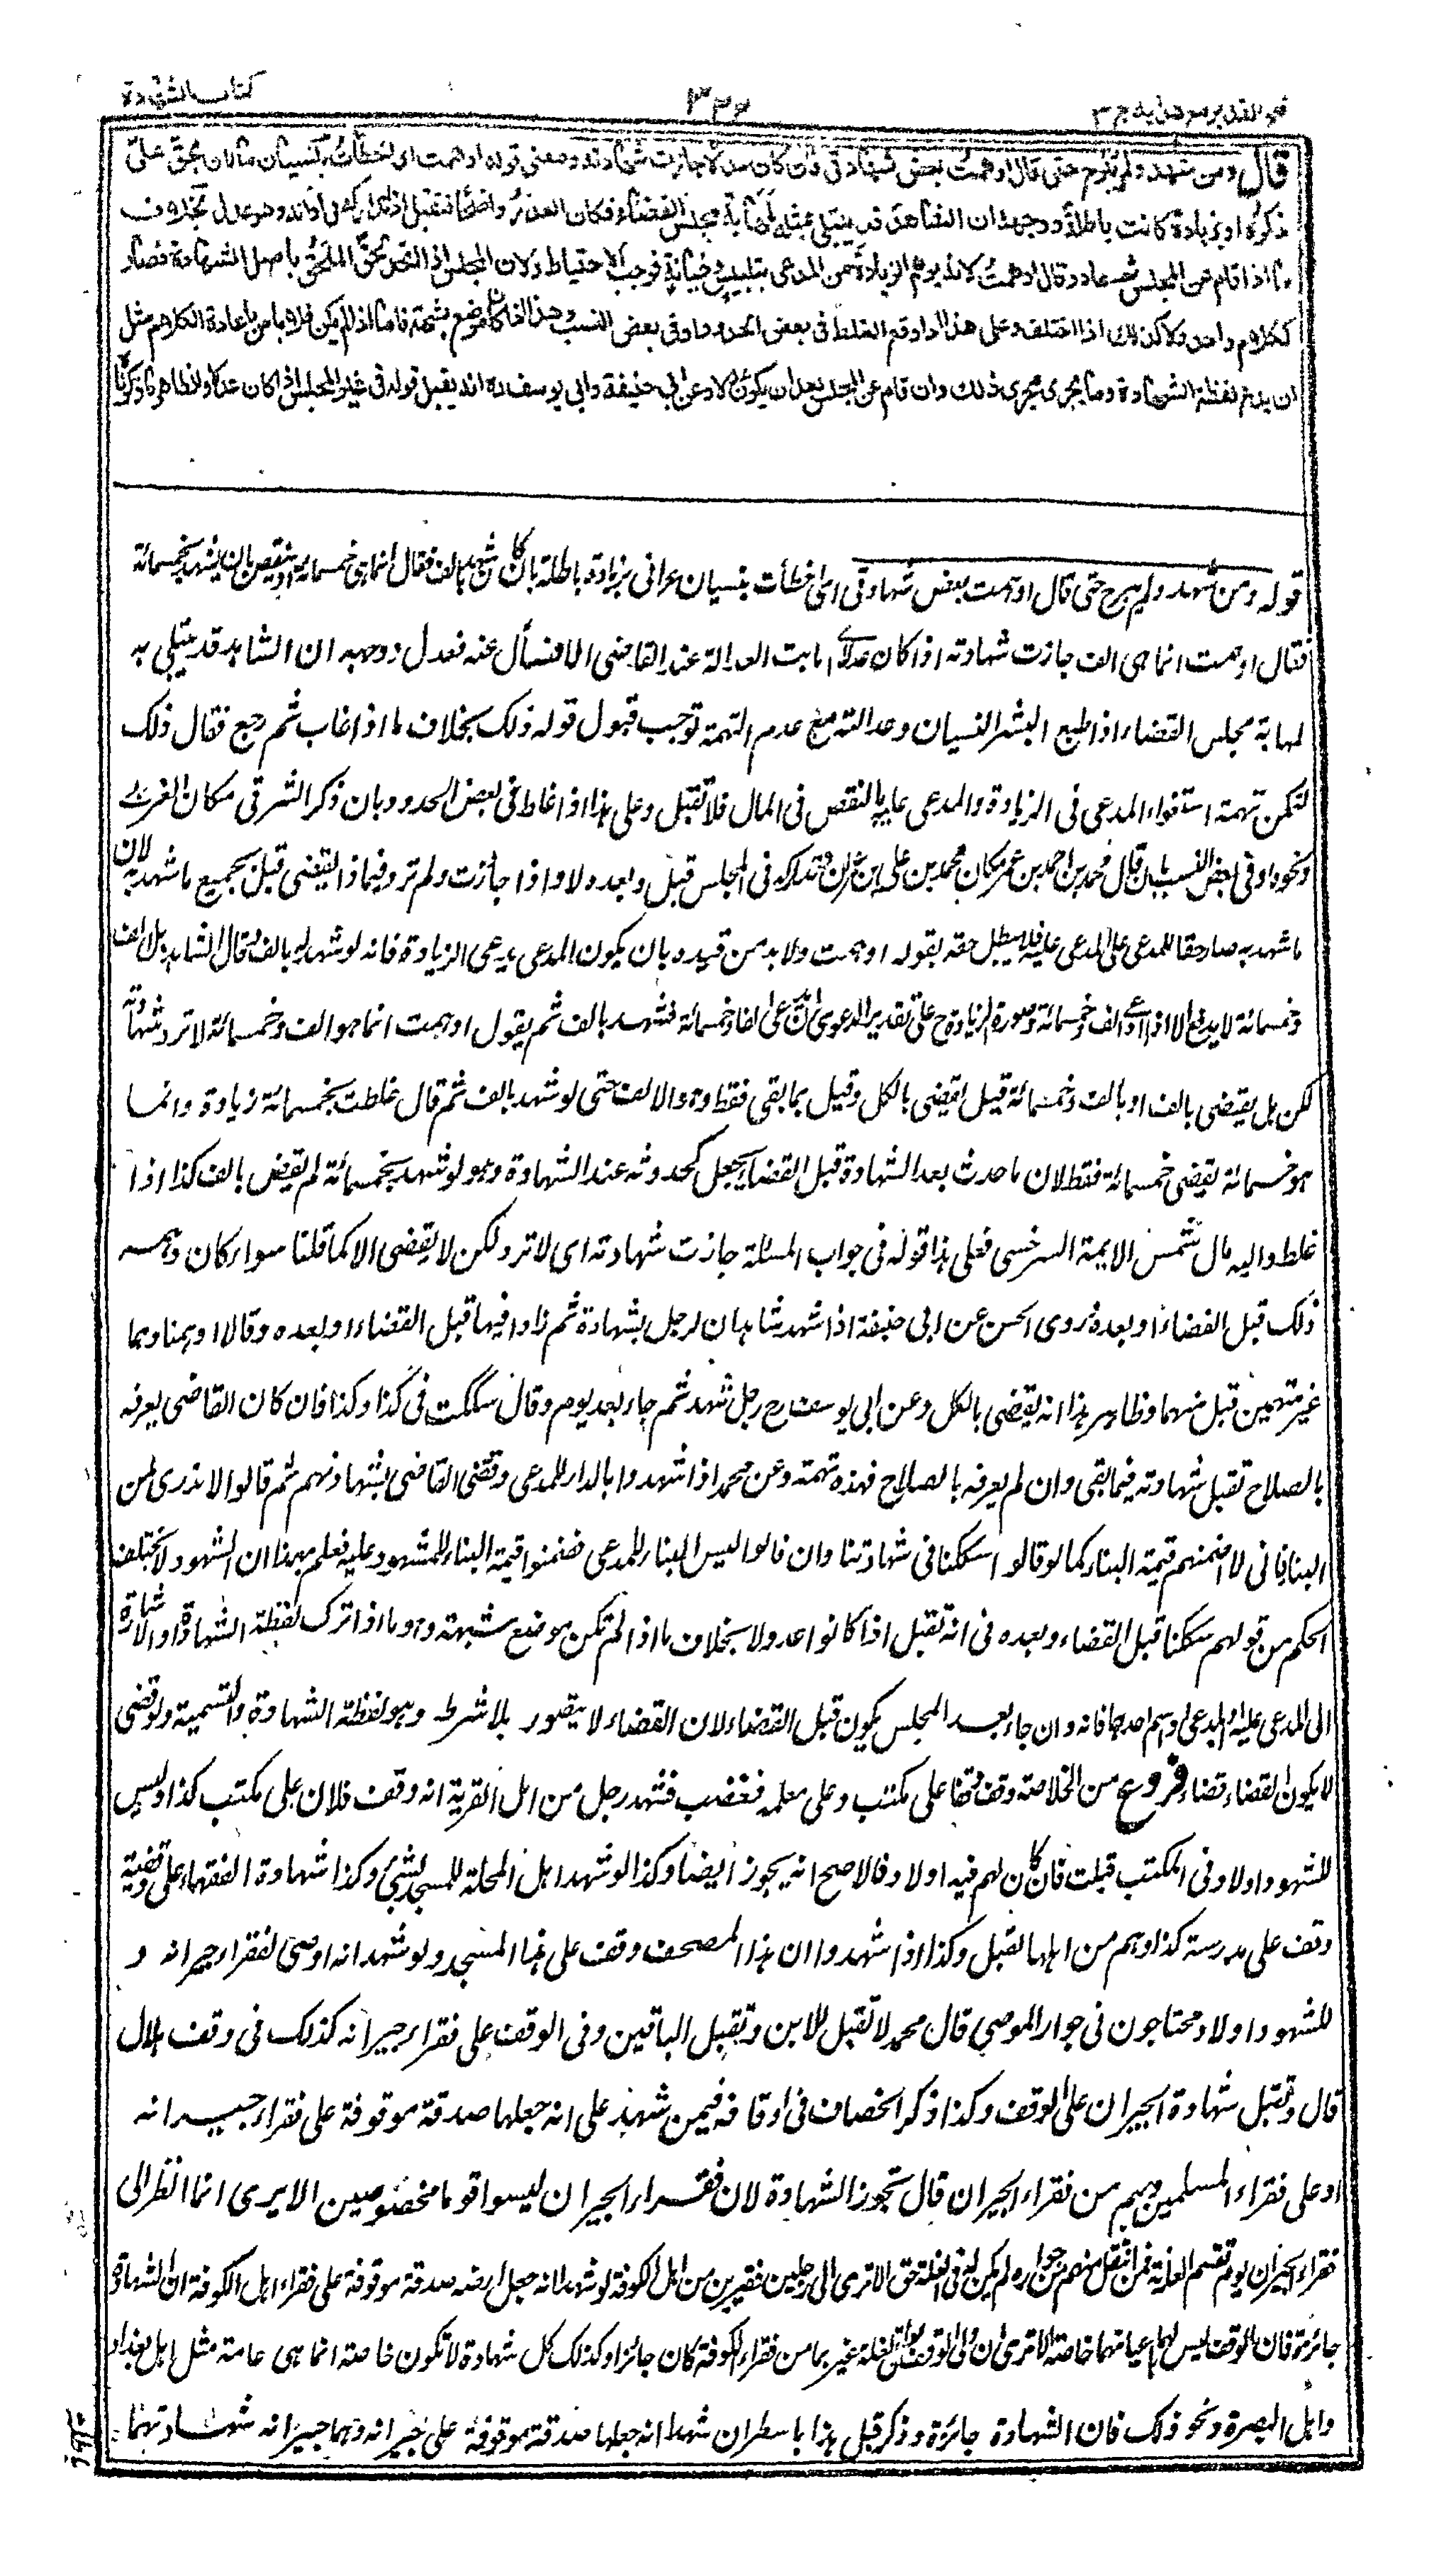 كتاب الشهادة
٣٢٦
فتح القدير مع هدايه ج ٣
قال ومن شهد ولم يبرح حتى قال اوهمت بعض شهادتى فان كان عدلا جازت شهادته ومعنى قوله اوهمت اى اخطأت بنسيان ما كان يحق على
ذكره او بزيادة كانت باطلة ووجهه ان الشاهد قد يبتلى بمثله لمهابة مجلس القضاء فكان العذر واضحا فتقبل اذا تداركه فى اوانه وهو عدل بخلاف
ما اذا قام عن المجلس ثم عاد وقال اوهمت لانه يوهم الزيادة من المدعى بتلبيس وخيانة فوجب الاحتياط ولان المجلس اذا اتحد لحق الملحق باصل الشهادة فصار
ككلام واحد ولا كذلك اذا اختلف وعلى هذا اذا وقع الغلط فى بعض الحدود او فى بعض النسب وهذا اذا كان موضع شبهة فاما اذا لم يكن فلا باس باعادة الكلام مثل
ان يدع لفظة الشهادة وما يجرى مجرى ذلك وان قام عن المجلس بعد ان يكون عدلا وعن ابى حنيفة وابى يوسف ره انه يقبل قوله فى غير المجلس اذا كان عدلا والظاهر ما ذكرناه
قوله ومن شهد ولم يبرح حتى قال اوهمت بعض شهادتى اى اخطأت بنسيان عرانى بزيادة باطلة بان كان شهد بالف فقال انما هى خمسمائة او بنقص بان يشهد بخمسمائة
فقال اوهمت انما هى الف جازت شهادته اذا كان عدلا اى ثابت العدالة عند القاضى الا فسأل عنه فعدل ووجهه ان الشاهد قد يبتلى به
لمهابة مجلس القضاء اذ طبع البشر النسيان وعدالته مع عدم التهمة توجب قبول قوله ذلك بخلاف ما اذا غاب ثم رجع فقال ذلك
لتمكن تهمة استغواء المدعى فى الزيادة والمدعى عليه بالنقص فى المال فلا تقبل وعلى هذا اذا غلط فى بعض الحدود بان ذكر الشرقى مكان الغربى
ونحوه او فى بعض النسب بان قال محمد بن احمد بن عمر مكان محمد بن على بن عمر فتداركه فى المجلس قبل وبعده لا واذا جازت ولم ترد فبماذا يقضى قيل بجميع ما شهد به لان
ما شهد به صار حقا للمدعى على المدعى عليه فلا يبطل حقه بقوله اوهمت ولا بد من قيده بان يكون المدعى يدعى الزيادة فانه لو شهد له بالف وقال الشاهد بل الف
وخمسمائة لا يدفع الا اذا ادعى الف وخمسمائة وصورة الزيادة ح على تقدير الدعوى ان يدعى الفا وخمسمائة فشهد بالف ثم يقول اوهمت انما هو الف وخمسمائة لا ترد شهادته
لكن هل يقضى بالف او بالف وخمسمائة قيل يقضى بالكل وقيل بما بقى فقط وهو الالف حتى لو شهد بالف ثم قال غلطت بخمسمائة زيادة وانما
هو خمسمائة يقضى خمسمائة فقط لان ما حدث بعد الشهادة قبل القضاء يجعل كحدوثه عند الشهادة وهو لو شهد بخمسمائة لم يقض بالف كذا اذا
غلط واليه مال شمس الايمة السرخسى فعلى هذا قوله فى جواب المسئلة جازت شهادته اى لا ترد ولكن لا يقضى الا كما قلنا سواء كان وهمه
ذلك قبل القضاء او بعده روى الحسن عن ابى حنيفة اذا شهد شاهدان لرجل بشهادة ثم زادا فيها قبل القضاء او بعده وقالا اوهمنا وهما
غير متهمين قبل منهما وظاهر هذا انه يقضى بالكل وعن ابى يوسف رح رجل شهد ثم جاء بعد يوم وقال شككت فى كذا وكذا فان كان القاضى يعرفه
بالصلاح تقبل شهادته فيما بقى وان لم يعرفه بالصلاح فهذه تهمة وعن محمد اذا شهدوا بالدار للمدعى وقضى القاضى بشهادتهم ثم قالوا لا ندرى لمن
البناء فانى لا اضمنهم قيمة البناء كما لو قالوا شككنا فى شهادتنا وان قالوا ليس البناء للمدعى ضمنوا قيمة البناء للمشهود عليه فعلم بهذا ان الشهود لا يختلف
الحكم من قولهم شككنا قبل القضاء وبعده فى انه تقبل اذا كانوا عدولا بخلاف ما اذا لم تكن موضع شبهة وهو ما اذا ترك لفظة الشهادة او الاشارة
الى المدعى عليه او المدعى او اسم احدهما فانه وان جاء بعد المجلس يكون قبل القضاء لان القضاء لا يتصور بلا شرط وهو لفظة الشهادة والتسمية ولو قضى
لا يكون القضاء قضاء فروع من الخلاصة وقف وقفا على مكتب وعلى معلمه فغصب فشهد رجل من اهل القرية انه وقف فلان على مكتب كذا وليس
للشهود اولاد فى المكتب قبلت فان كان لهم فيه اولاد فالاصح انه يجوز ايضا وكذا لو شهد اهل المحلة للمسجد بشئ وكذا شهادة الفقهاء على وقفية
وقف على مدرسة كذا وهم من اهلها تقبل وكذا اذا شهدوا ان هذا المصحف وقف على هذا المسجد ولو شهد انه اوصى لفقراء جيرانه و
للشهود اولاد محتاجون فى جوار الموصى قال محمد لا تقبل للابن وتقبل الباقين وفى الوقف على فقراء جيرانه كذلك فى وقف هلال
قال وتقبل شهادة الجيران على الوقف وكذا ذكر الخصاف فى اوقافه فيمن شهد على انه جعلها صدقة موقوفة على فقراء جيرانه
او على فقراء المسلمين وهم من فقراء الجيران قال تجوز الشهادة لان فقراء الجيران ليسوا قوما مخصوصين الا يرى انما انظر الى
فقراء الجيران يوم تقسم الغلة فمن انتقل منهم من جواره لم يكن له فى الغلة حق الا ترى الى رجلين فقيرين من اهل الكوفة لو شهدا انه جعل ارضه صدقة موقوفة على فقراء اهل الكوفة ان الشهادة
جائزة فان الوقف ليس لهما باعيانهما خاصة الا ترى ان والى الوقف لو اعطى الغلة غيرهما من فقراء الكوفة كان جائزا وكذلك كل شهادة لا تكون خاصة انما هى عامة مثل اهل بغداد
واهل البصرة ونحو ذلك فان الشهادة جائزة وذكر قبل هذا باسطر ان شهدا انه جعلها صدقة موقوفة على جيرانه وهما جيرانه شهادتهما